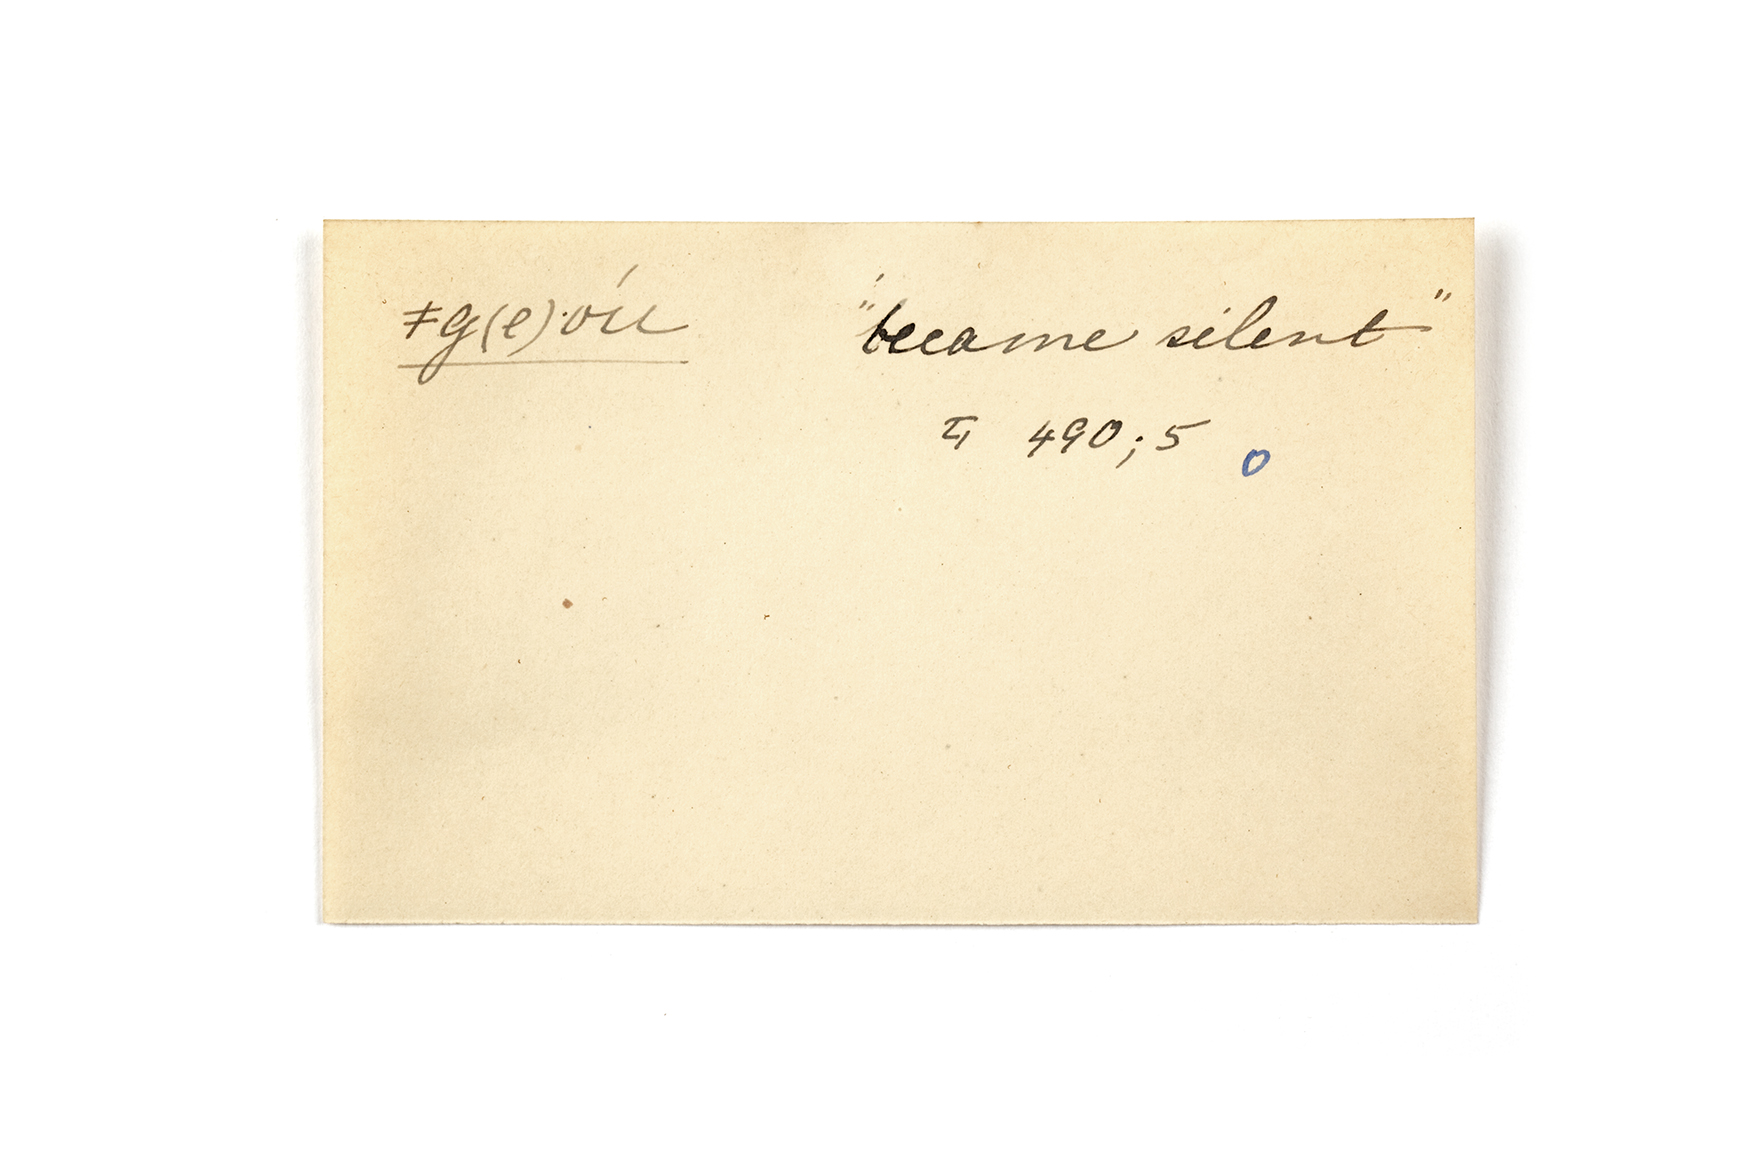 ≠g(e)·óu "became silent"
490;5 o